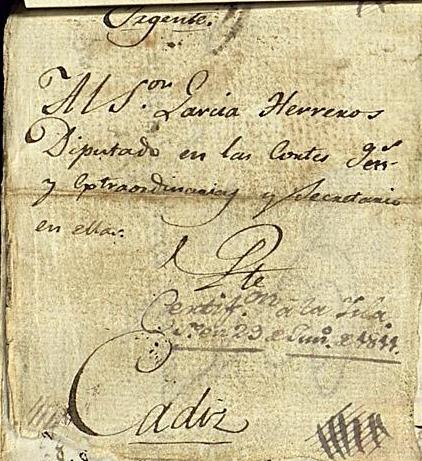 Urgente.
Al S.or Garcia Herreros
Diputado en las Cortes Gen.s
y Extraordinarias y Secretario
en ellas.
Pte
Certif.on a la Isla
en 23 de Jun.o de 1811.
Cadiz